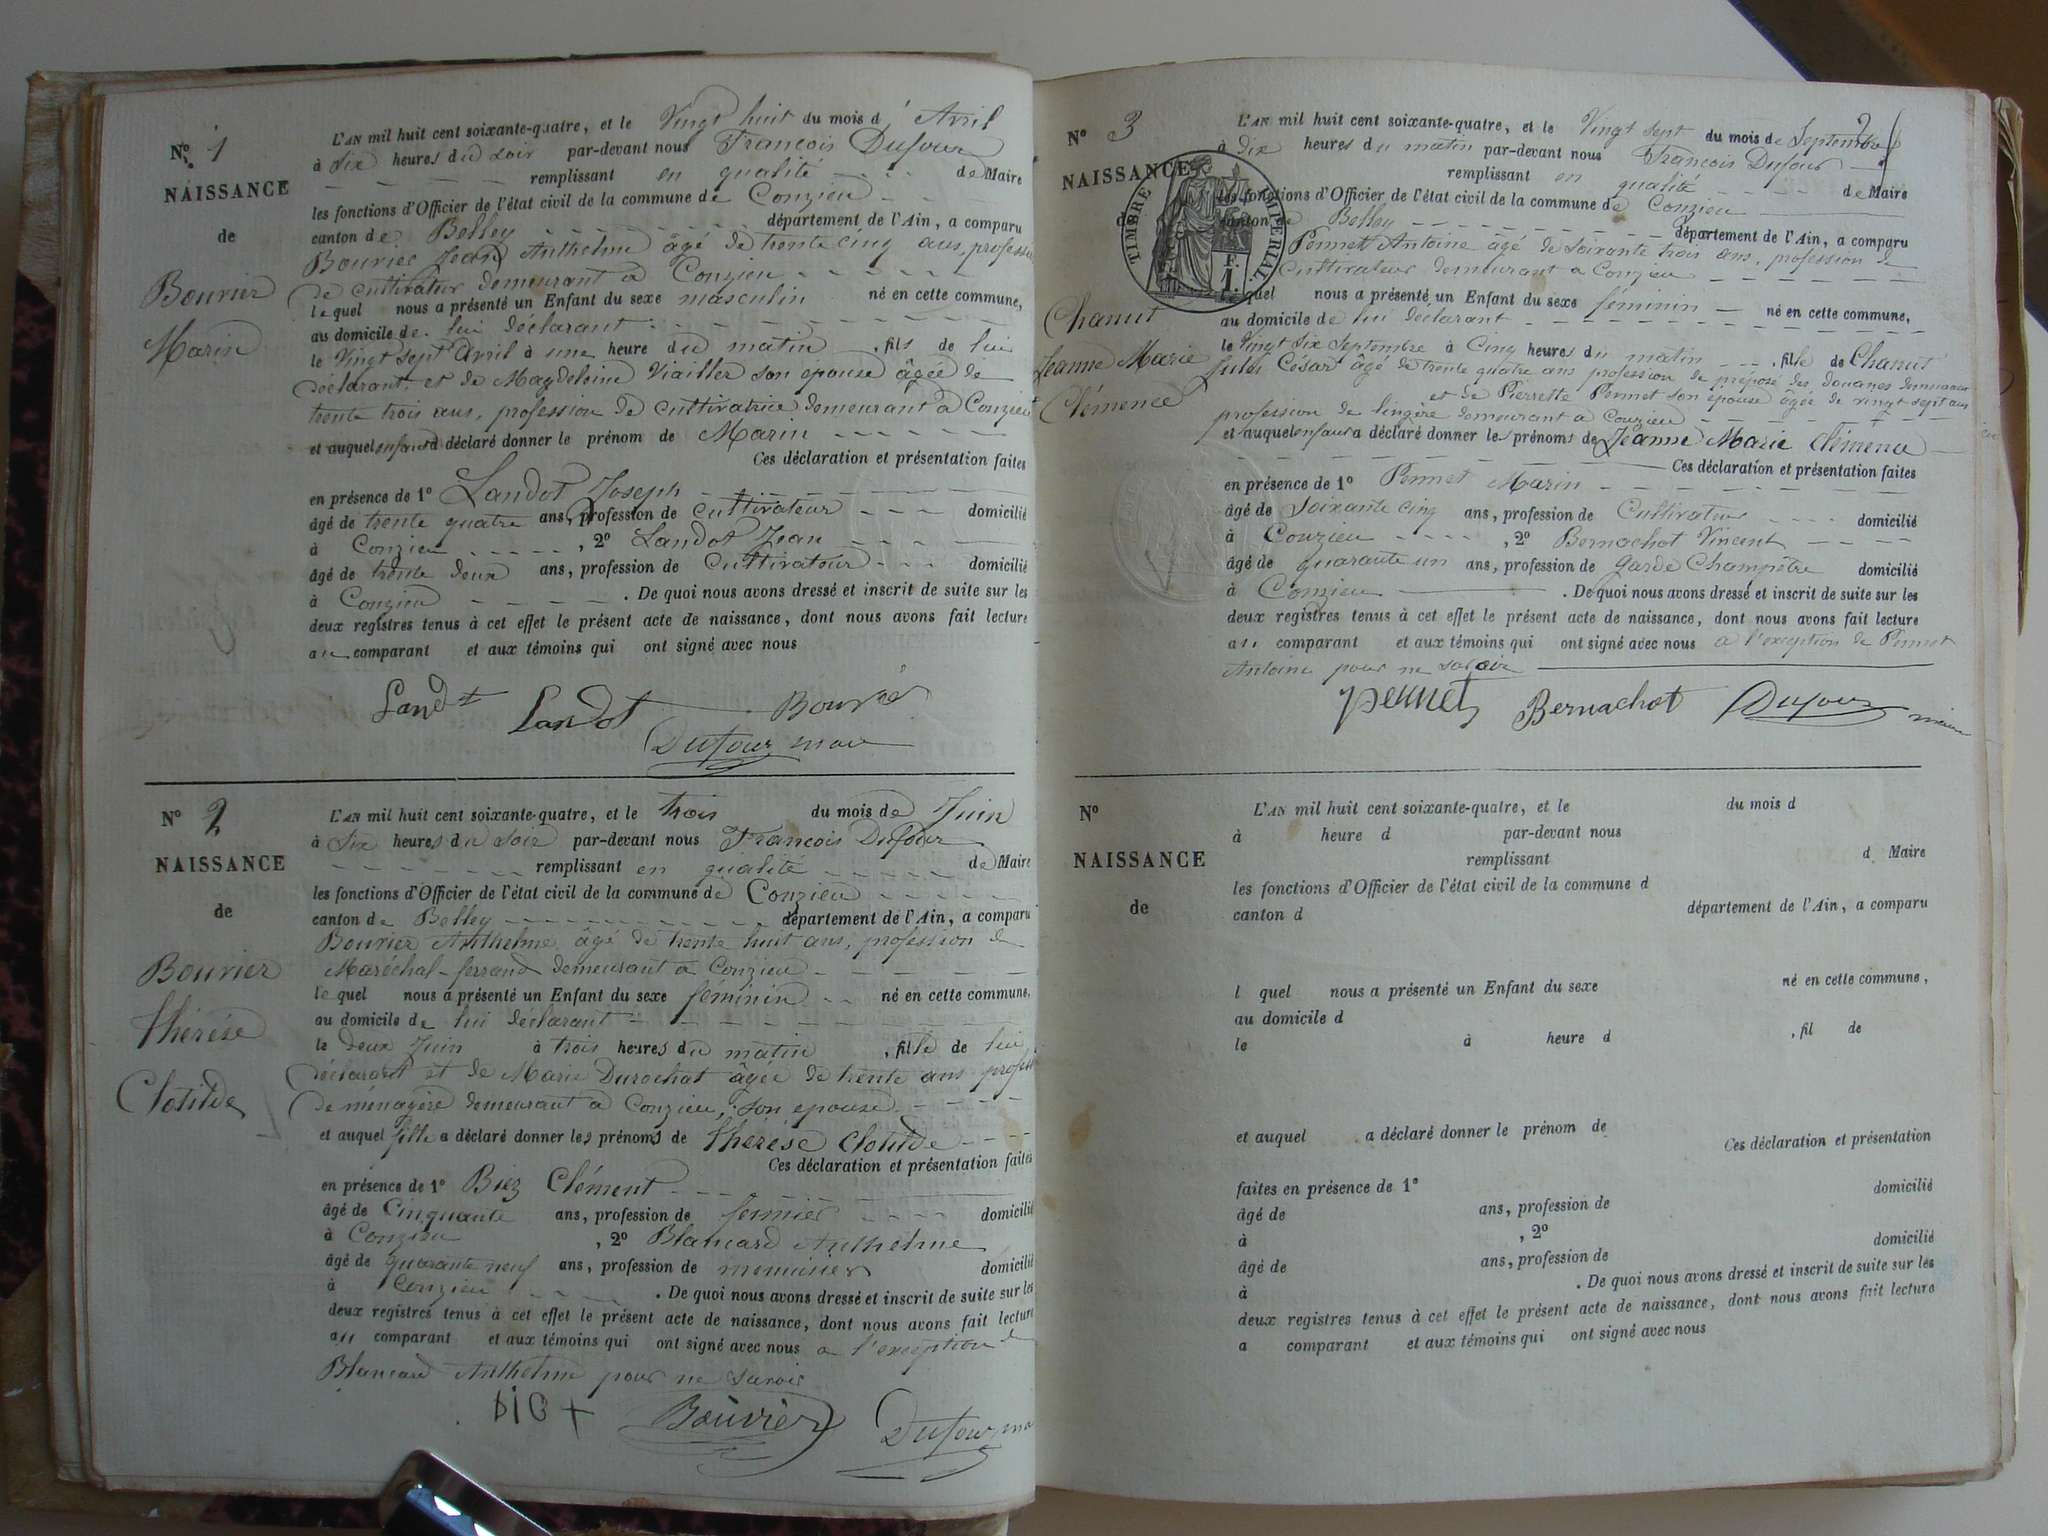 N° 1
NAISSANCE
de
Bouvier
Marin
L'AN mil huit cent soixante-quatre, et le Vingt huit du mois d'Avril
à Six heures du soir par-devant nous François Dufour
remplissant en qualité de Maire
les fonctions d'Officier de l'état civil de la commune de Conzieu
canton de Belley département de l'Ain, a comparu
Bouvier Jean Anthelme âgé de trente cinq ans, profession
de cultivateur demeurant à Conzieu
lequel nous a présenté un Enfant du sexe masculin né en cette commune,
au domicile de lui déclarant
le Vingt sept Avril à une heure du matin, fils de lui
déclarant et de Magdeleine Viallier son epouse âgée de
trente trois ans, profession de cultivatrice demeurant à Conzieu
et auquel enfant a déclaré donner le prénom de Marin
Ces déclaration et présentation faites
en présence de 1° Landot Joseph
âgé de trente quatre ans, profession de cultivateur domicilié
à Conzieu, 2° Landot Jean
âgé de trente deux ans, profession de cultivateur domicilié
à Conzieu. De quoi nous avons dressé et inscrit de suite sur les
deux registres tenus à cet effet le présent acte de naissance, dont nous avons fait lecture
au comparant et aux témoins qui ont signé avec nous
Landot Landot Bouvier
Dufour maire
N° 2
NAISSANCE
de
Bouvier
thérése
Clotilde
L'AN mil huit cent soixante-quatre, et le trois du mois de Juin
à Six heures du soir par-devant nous François Dufour
remplissant en qualité de Maire
les fonctions d'Officier de l'état civil de la commune de Conzieu
canton de Belley département de l'Ain, a comparu
Bouvier Anthelme âgé de trente huit ans, profession de
Maréchal-ferrand demeurant à Conzieu
lequel nous a présenté un Enfant du sexe féminin né en cette commune,
au domicile de lui déclarant
le deux Juin à trois heures du matin, fille de lui
déclarant et de Marie Durochat âgée de trente ans profess
de ménagère demeurant à Conzieu, son epouse
et auquel fille a déclaré donner les prénoms de thérése Clotilde
Ces déclaration et présentation faites
en présence de 1° Biez Clément
âgé de Cinquante ans, profession de fermier domicilié
à Conzieu, 2° Blancard Anthelme
âgé de quarante neuf ans, profession de menuisier domicilié
à Conzieu. De quoi nous avons dressé et inscrit de suite sur les
deux registres tenus à cet effet le présent acte de naissance, dont nous avons fait lecture
au comparant et aux témoins qui ont signé avec nous a l'exception de
Blancard Anthelme pour ne savoir
Bouvier Dufour ma
N° 3
NAISSANCE
de
TIMBRE IMPÉRIAL
F.
1.
Chanut
Jeanne Marie
Clémence
L'AN mil huit cent soixante-quatre, et le Vingt sept du mois de Septembre
à dix heures du matin par-devant nous François Dufour
remplissant en qualité de Maire
les fonctions d'Officier de l'état civil de la commune de Conzieu
canton de Belley département de l'Ain, a comparu
Pennet Antoine âgé de soixante trois ans, profession de
cultivateur demeurant a Conzieu
lequel nous a présenté un Enfant du sexe féminin né en cette commune,
au domicile de lui déclarant
le Vingt Six Septembre à Cinq heures du matin, fille de Chanut
Jules César âgé de trente quatre ans profession de préposé des douanes demeurant
et de Pierrette Pennet son épouse âgée de vingt sept ans
profession de lingère demeurant a Conzieu
et auquel enfant a déclaré donner les prénoms de Jeanne Marie Clémence
Ces déclaration et présentation faites
en présence de 1° Pennet Marin
âgé de Soixante cinq ans, profession de Cultivateur domicilié
à Conzieu, 2° Bernachot Vincent
âgé de quarante un ans, profession de Garde Champêtre domicilié
à Conzieu. De quoi nous avons dressé et inscrit de suite sur les
deux registres tenus à cet effet le présent acte de naissance, dont nous avons fait lecture
au comparant et aux témoins qui ont signé avec nous a l'exception de Pennet
Antoine pour ne savoir
Pennet Bernachot Dufour maire
N°
NAISSANCE
de
L'AN mil huit cent soixante-quatre, et le du mois d
à heure d par-devant nous
remplissant d Maire
les fonctions d'Officier de l'état civil de la commune d
canton d département de l'Ain, a comparu
l quel nous a présenté un Enfant du sexe né en cette commune,
au domicile d
le à heure d , fil de
et auquel a déclaré donner le prénom de
Ces déclaration et présentation
faites en présence de 1° domicilié
âgé de ans, profession de
à , 2° domicilié
âgé de ans, profession de
à . De quoi nous avons dressé et inscrit de suite sur les
deux registres tenus à cet effet le présent acte de naissance, dont nous avons fait lecture
a comparant et aux témoins qui ont signé avec nous